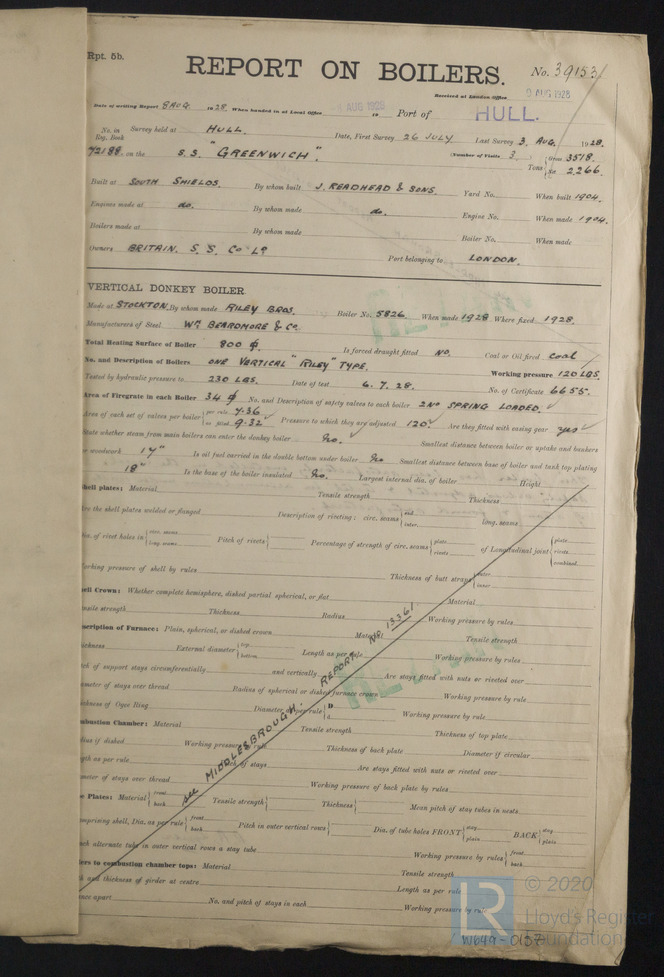 Rpt. 5b.
REPORT ON BOILERS. No. 39153
Received at London Office 9 AUG 1928
Date of writing Report 8 AUG. 1928. When handed in at Local Office AUG 1928 Port of HULL.
No. in Reg. Book Survey held at HULL. Date, First Survey 26 JULY Last Survey 3 AUG. 1928.
72188. on the S.S. "GREENWICH". (Number of Visits 3. Tons Gross 3518. Net 2266.
Built at SOUTH SHIELDS. By whom built J. READHEAD & SONS. Yard No. When built 1904.
Engines made at do. By whom made do. Engine No. When made 1904.
Boilers made at By whom made Boiler No. When made
Owners BRITAIN. S.S. Co Ld Port belonging to LONDON.
VERTICAL DONKEY BOILER.
Made at STOCKTON. By whom made RILEY BROS. Boiler No. 5826 When made 1928 Where fixed 1928.
Manufacturers of Steel WM BEARDMORE & Co.
Total Heating Surface of Boiler 800 ф Is forced draught fitted NO. Coal or Oil fired Coal
No. and Description of Boilers ONE VERTICAL "RILEY" TYPE. Working pressure 120 LBS.
Tested by hydraulic pressure to 230 LBS. Date of test 6.7.28. No. of Certificate 6655.
Area of Firegrate in each Boiler 34 ф No. and Description of safety valves to each boiler 2 No SPRING LOADED.
Area of each set of valves per boiler per rule 7.36 as fitted 9.32 Pressure to which they are adjusted 120 Are they fitted with easing gear yes
State whether steam from main boilers can enter the donkey boiler No. Smallest distance between boiler or uptake and bunkers
or woodwork 14" Is oil fuel carried in the double bottom under boiler No Smallest distance between base of boiler and tank top plating
18" Is the base of the boiler insulated No. Largest internal dia. of boiler Height
Shell plates: Material Tensile strength Thickness
Are the shell plates welded or flanged Description of riveting: circ. seams end inter. long. seams
Dia. of rivet holes in circ. seams long. seams Pitch of rivets Percentage of strength of circ. seams plate rivets of Longitudinal joint plate rivets combined
orking pressure of shell by rules Thickness of butt straps outer inner
ell Crown: Whether complete hemisphere, dished partial spherical, or flat Material
nsile strength Thickness Radius Working pressure by rules
scription of Furnace: Plain, spherical, or dished crown Material Tensile strength
ickness External diameter top bottom Length as per rule Working pressure by rules
tch of support stays circumferentially and vertically Are stays fitted with nuts or riveted over
ameter of stays over thread Radius of spherical or dished furnace crown Working pressure by rules
ickness of Ogee Ring Diameter as per rule D d Working pressure by rules
mbustion Chamber: Material Tensile strength Thickness of top plate
dius if dished Working pressure by rule Thickness of back plate Diameter if circular
gth as per rule Pitch of stays Are stays fitted with nuts or riveted over
ameter of stays over thread Working pressure of back plate by rules
e Plates: Material front back Tensile strength Thickness Mean pitch of stay tubes in nests
mprising shell, Dia. as per rule front back Pitch in outer vertical rows Dia. of tube holes FRONT stay plain BACK stay plain
ach alternate tube in outer vertical rows a stay tube Working pressure by rules front back
ders to combustion chamber tops: Material Tensile strength
h and thickness of girder at centre Length as per rule
ance apart No. and pitch of stays in each Working pressure by rule
see MIDDLESBROUGH. REPORT No. 13361
© 2020
LR Lloyd's Register
Foundation
W649-0157